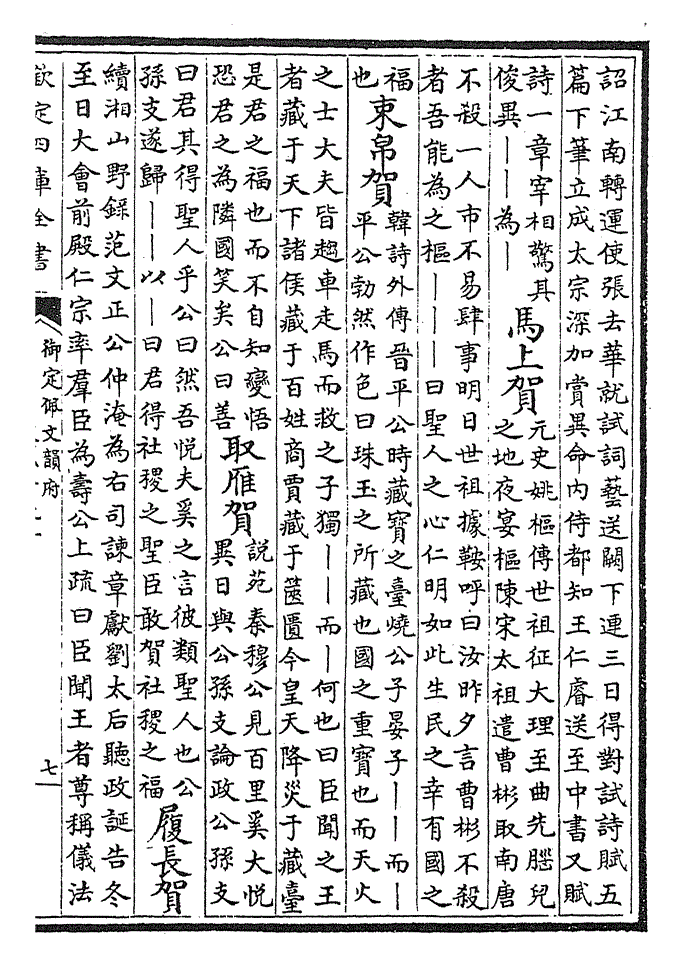 詔江南轉運使張去華就試詞藝送闕下連三日得對試詩賦五
篇下筆立成太宗深加賞異命内侍都知王仁睿送至中書又賦
詩一章宰相驚其
俊異——為—
馬上賀
元史姚樞傳世祖征大理至曲先腦兒
之地夜宴樞陳宋太祖遣曹彬取南唐
不殺一人市不易肆事明日世祖據鞍呼曰汝昨夕言曹彬不殺
者吾能為之樞———曰聖人之心仁明如此生民之幸有國之
福
也
束帛賀
韓詩外傳晉平公時藏寶之臺燒公子晏子——而—
平公勃然作色曰珠玉之所藏也國之重寶也而天火
之士大夫皆趨車走馬而救之子獨——而—何也曰臣聞之王
者藏于天下諸侯藏于百姓商賈藏于篋匱今皇天降災于藏臺
是君之福也而不自知變悟
恐君之為隣國笑矣公曰善
取雁賀
說苑秦穆公見百里奚大悦
異日與公孫支論政公孫支
曰君其得聖人乎公曰然吾悦夫奚之言彼類聖人也公
孫支遂歸——以—曰君得社稷之聖臣敢賀社稷之福
履長賀
續湘山野錄范文正公仲淹為右司諫章獻劉太后聽政誕告冬
至日大會前殿仁宗率羣臣為壽公上疏曰臣聞王者尊稱儀法
欽定四庫全書
御定佩文韻府
七